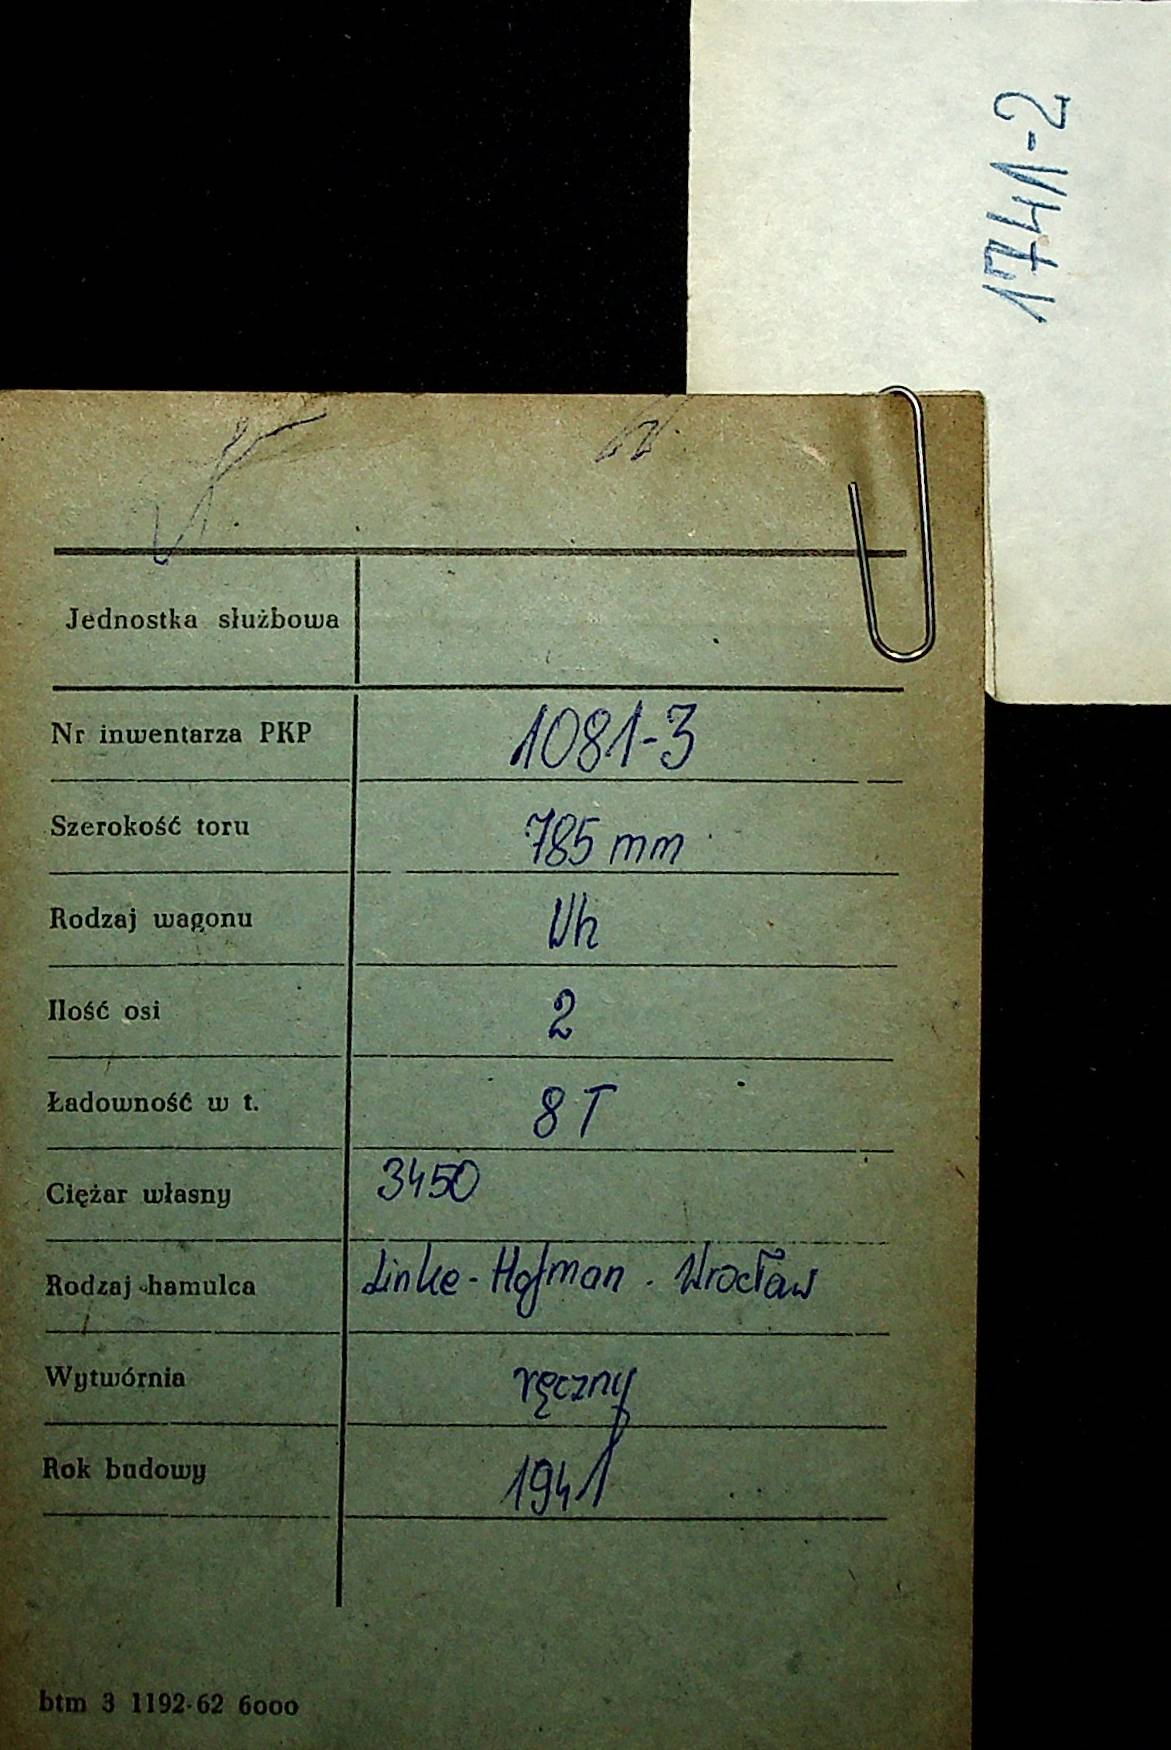 1741-2
Jednostka służbowa
Nr inwentarza PKP 1081-3
Szerokość toru 785 mm
Rodzaj wagonu Wh
Ilość osi 2
Ładowność w t. 8 T
Ciężar własny 3450
Rodzaj hamulca Linke - Hofman. Wrocław
Wytwórnia ręczny
Rok budowy 1941
btm 3 1192-62 6000